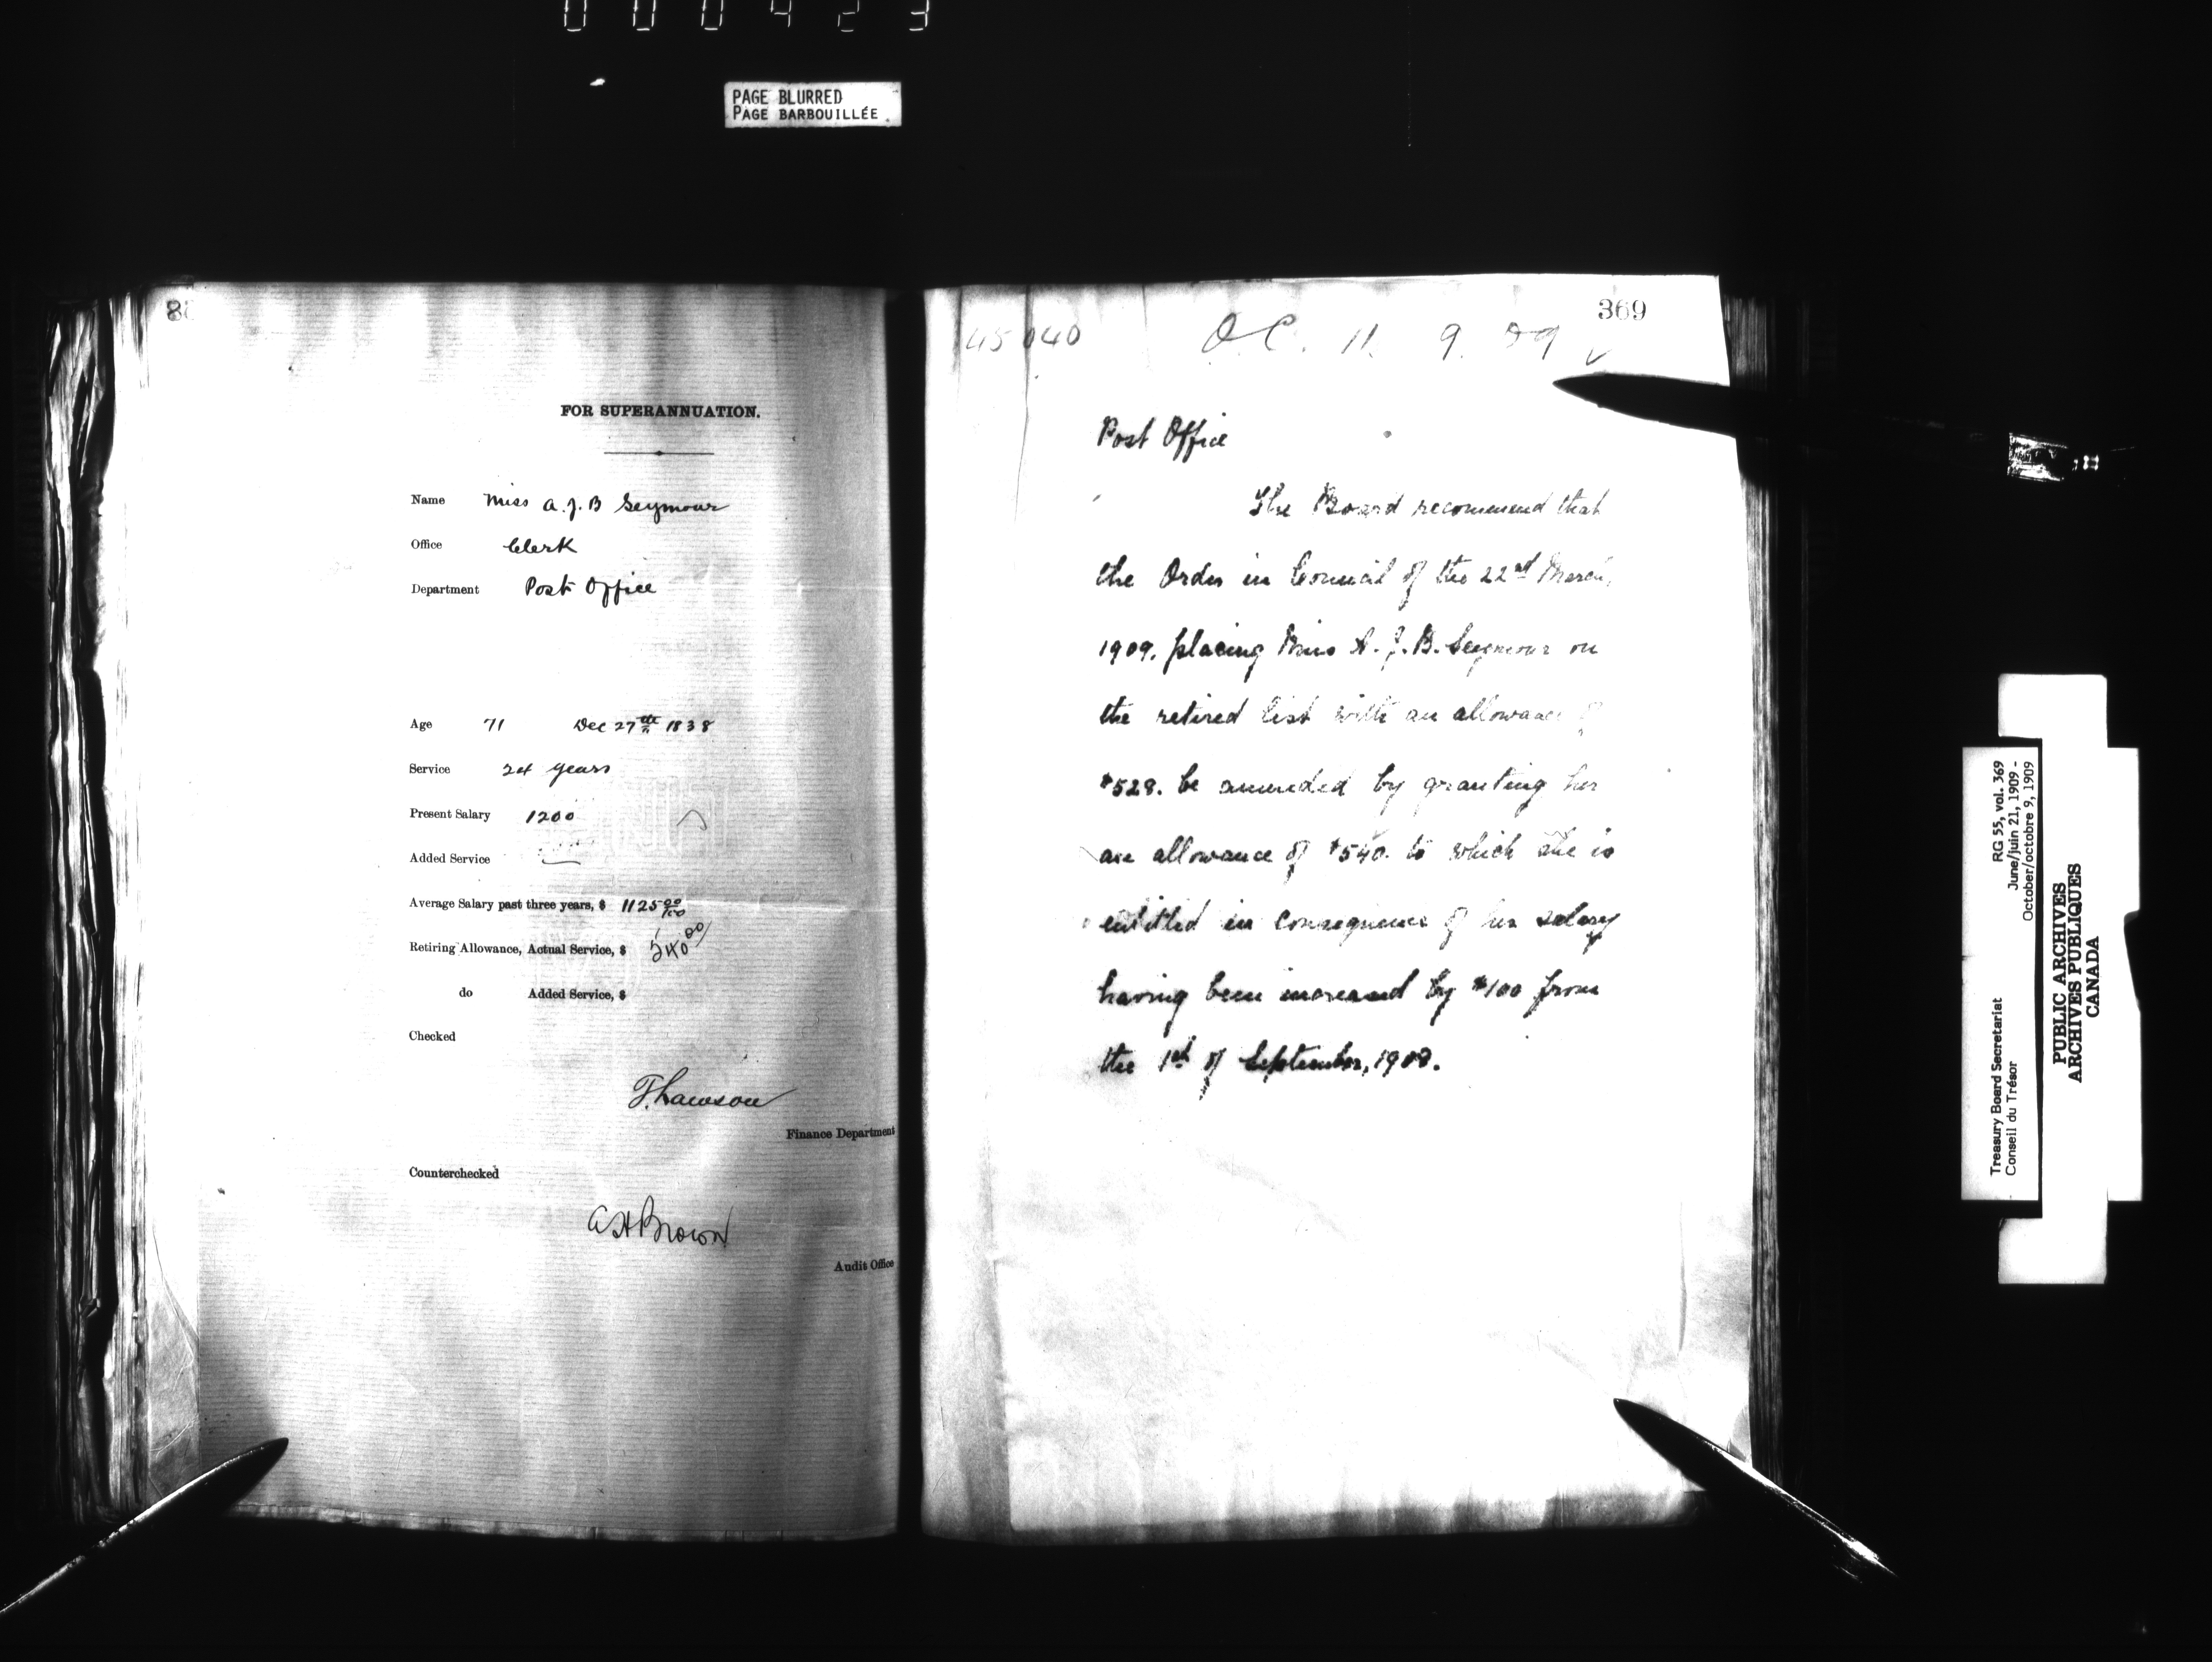 000423
PAGE BLURRED
PAGE BARBOUILLÉE
FOR SUPERANNUATION.
Name Miss A. J. B Seymour
Office Clerk
Department Post Office
Age 71 Dec 27th 1838
Service 24 years
Present Salary 1200
Added Service
Average Salary past three years, $ 1125 00/100
Retiring Allowance, Actual Service, $ 540 00/
do Added Service, $
Checked
T. Lawson
Finance Department
Counterchecked
A H Brown
Audit Office
369
45040 O.C. 11. 9. 09 ✓
Post Office
The Board recommend that
the Order in Council of the 22nd March,
1909, placing Miss A. J. B. Seymour on
the retired list with an allowance of
$528. be amended by granting her
an allowance of $540. to which she is
entitled in consequence of her salary
having been increased by $100 from
the 1st of September, 1908.
Treasury Board Secretariat RG 55, vol. 369
Conseil du Trésor June/juin 21, 1909 -
October/octobre 9, 1909
PUBLIC ARCHIVES
ARCHIVES PUBLIQUES
CANADA